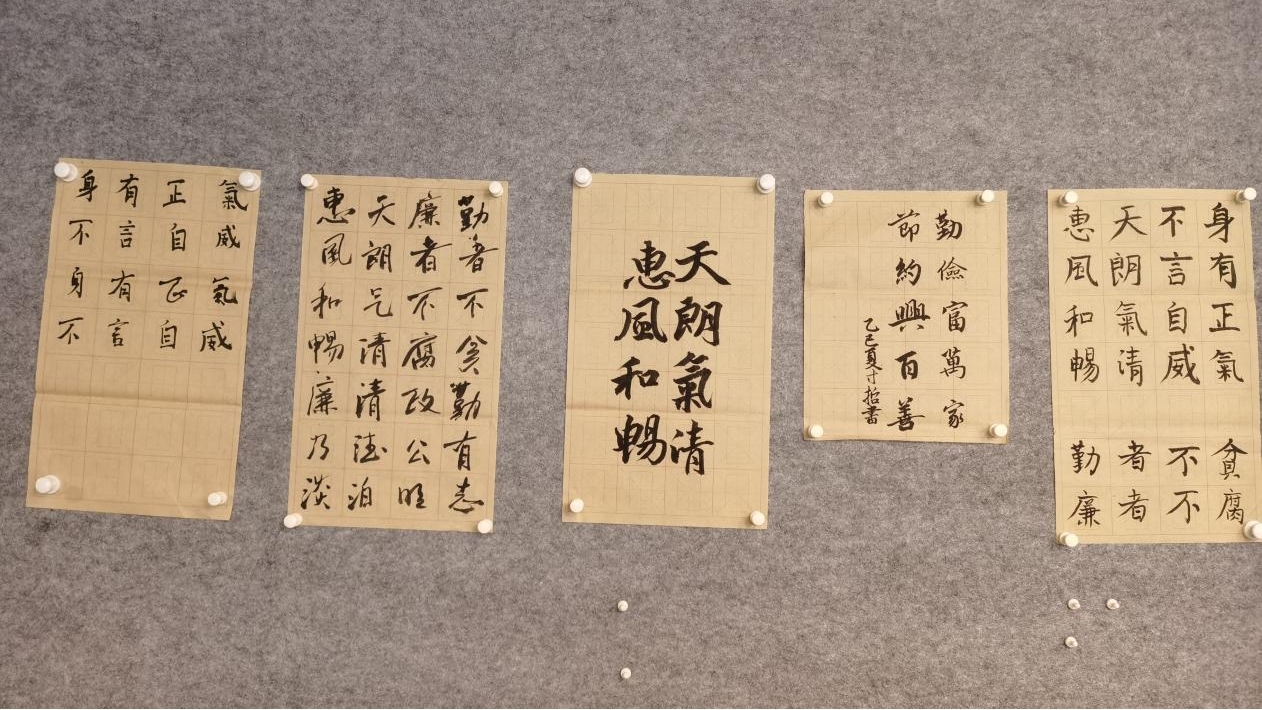 身有正氣
不言自威
身有正氣
不言自威
勤者不貪勤有志
廉者不腐政公明
天朗气清清泊
惠風和暢廉乃淡
天朗氣清
惠風和暢
勤儉富萬家
節約興百善
乙巳夏寸招書
身有正氣
不言自威
天朗氣清
惠風和暢
勤者不貪
廉者不腐